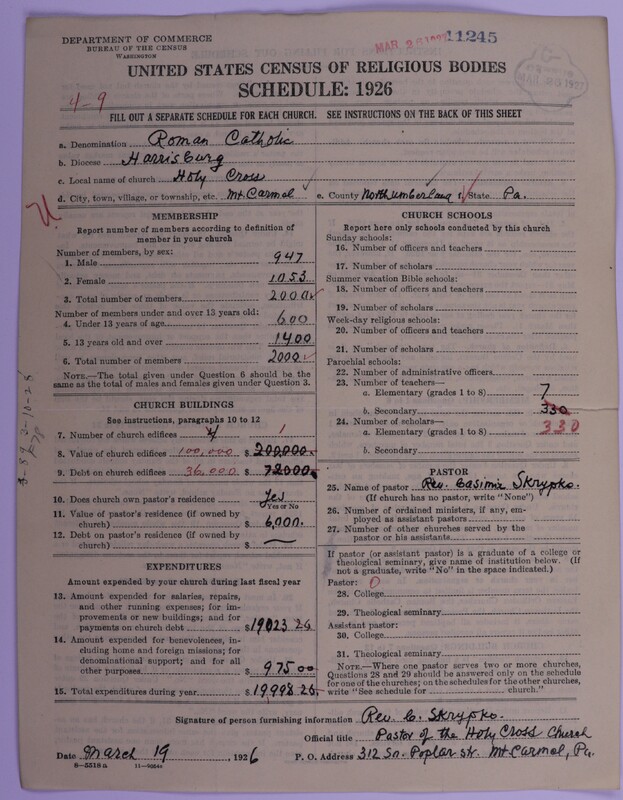 DEPARTMENT OF COMMERCE
BUREAU OF THE CENSUS
WASHINGTON
MAR 26 1927
11245
UNITED STATES CENSUS OF RELIGIOUS BODIES
SCHEDULE: 1926
4-9
FILL OUT A SEPARATE SCHEDULE FOR EACH CHURCH. SEE INSTRUCTIONS ON THE BACK OF THIS SHEET
a. Denomination Roman Catholic
b. Diocese Harrisburg
c. Local name of church Holy Cross
d. City, town, village, or township, etc. Mt Carmel e. County Northumberland f. State Pa.
MEMBERSHIP
Report number of members according to definition of
member in your church
Number of members, by sex:
1. Male 947
2. Female 1053
3. Total number of members 2000
Number of members under and over 13 years old:
4. Under 13 years of age 600
5. 13 years old and over 1400
6. Total number of members 2000
NOTE.—The total given under Question 6 should be the
same as the total of males and females given under Question 3.
CHURCH BUILDINGS
See instructions, paragraphs 10 to 12
7. Number of church edifices 1
8. Value of church edifices 100,000 $ 200,000
9. Debt on church edifices 36,000 $ 72000
10. Does church own pastor's residence Yes
Yes or No
11. Value of pastor's residence (if owned by
church) $ 6,000.
12. Debt on pastor's residence (if owned by
church) $ —
EXPENDITURES
Amount expended by your church during last fiscal year
13. Amount expended for salaries, repairs,
and other running expenses; for im-
provements or new buildings; and for
payments on church debt $ 19023 26
14. Amount expended for benevolences, in-
cluding home and foreign missions; for
denominational support; and for all
other purposes $ 975 00
15. Total expenditures during year $ 19998 26
CHURCH SCHOOLS
Report here only schools conducted by this church
Sunday schools:
16. Number of officers and teachers
17. Number of scholars
Summer vacation Bible schools:
18. Number of officers and teachers
19. Number of scholars
Week-day religious schools:
20. Number of officers and teachers
21. Number of scholars
Parochial schools:
22. Number of administrative officers
23. Number of teachers—
a. Elementary (grades 1 to 8) 7
b. Secondary 330
24. Number of scholars—
a. Elementary (grades 1 to 8) 330
b. Secondary
PASTOR
25. Name of pastor Rev. Casimir Skrypko.
(If church has no pastor, write "None")
26. Number of ordained ministers, if any, em-
ployed as assistant pastors
27. Number of other churches served by the
pastor or his assistants
If pastor (or assistant pastor) is a graduate of a college or
theological seminary, give name of institution below. (If
not a graduate, write "No" in the space indicated.)
Pastor: 0
28. College
29. Theological seminary
Assistant pastor:
30. College
31. Theological seminary
NOTE.—Where one pastor serves two or more churches,
Questions 28 and 29 should be answered only on the schedule
for one of the churches; on the schedules for the other churches,
write "See schedule for church."
Signature of person furnishing information Rev. C. Skrypko.
Official title Pastor of the Holy Cross Church
Date March 19, 1926 P. O. Address 312 So. Poplar str. Mt Carmel, Pa.
8-5518 a